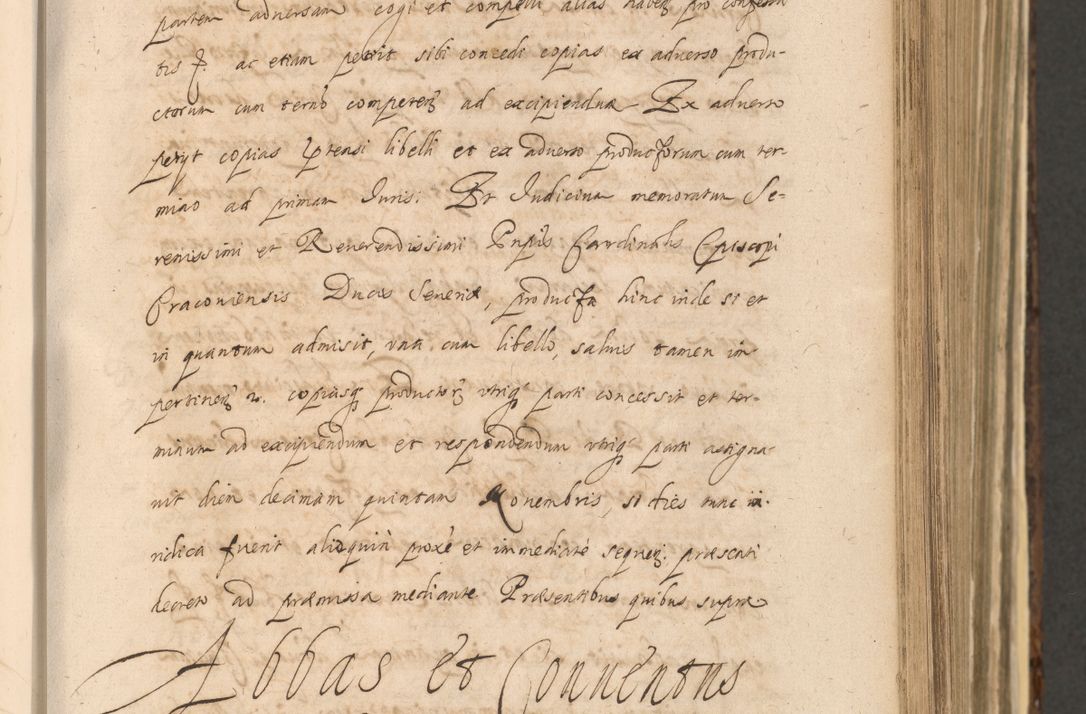 partem adversam cogi et compelli alias haberi pro confessa
tis P. ac etiam petiit sibi concedi copias ex adverso produ-
ctorum cum termo competenz ad excipiendum Ex adverso
petyt copias Ptensi libelli et ex adverso productorum cum ter-
mino ad primam Juris. Et Judicium memoratum Se-
renissimi et Reverendissimi Pnpis Cardinalis Episcopi
Cracoviensis Ducis Severiæ, producta hinc inde si et
in quantum admisit, una cum libello, salvis tamen im-
pertinenz 2. copiasq productorz utriq parti concessit et ter-
minum ad excipiendum et respondendum utriq parti assigna-
vit diem decimam quintam Novembris, si dies tunc iu-
ridica fuerit alioquin proxe et immediaté sequenz. præscati
decreto ad præmissa mediante Præsentibus quibus supra
Abbas et Conventus